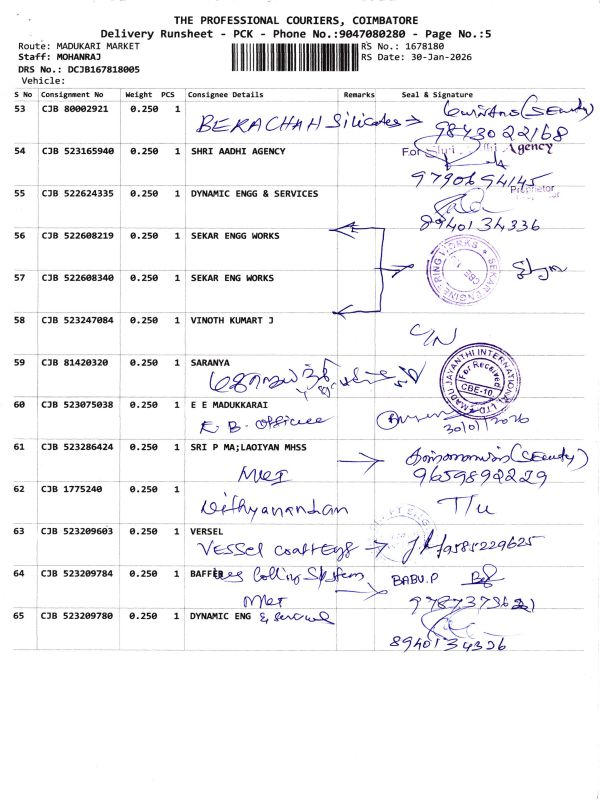 THE PROFESSIONAL COURIERS, COIMBATORE
Delivery Runsheet - PCK - Phone No.:9047080280 - Page No.:5
Route: MADUKARI MARKET RS No.: 1678180
Staff: MOHANRAJ RS Date: 30-Jan-2026
DRS No.: DCJB167818005
Vehicle:
S No Consignment No Weight PCS Consignee Details Remarks Seal & Signature
53 CJB 80002921 0.250 1 BERACHAH Silicates → (SEcuity)
9843022168
54 CJB 523165940 0.250 1 SHRI AADHI AGENCY For Shri Agency
9790694145 Proprietor
55 CJB 522624335 0.250 1 DYNAMIC ENGG & SERVICES
8940134336
56 CJB 522608219 0.250 1 SEKAR ENGG WORKS
SEKAR ENGINEERING WORKS
57 CJB 522608340 0.250 1 SEKAR ENG WORKS
58 CJB 523247084 0.250 1 VINOTH KUMART J C/N
59 CJB 81420320 0.250 1 SARANYA
MADU JAYANTHI INTERNATIONAL LTD
For Received
CBE-10
60 CJB 523075038 0.250 1 E E MADUKKARAI
E B. officee 30/01/2026
61 CJB 523286424 0.250 1 SRI P MA;LAOIYAN MHSS → (SEcuity)
9659892229
62 CJB 1775240 0.250 1
Nithyanandan T/u
63 CJB 523209603 0.250 1 VERSEL
VESSel coatings → 9585229625
64 CJB 523209784 0.250 1 BAFFLE Colling System BABU.P
65 CJB 523209780 0.250 1 DYNAMIC ENG & Service
8940134336